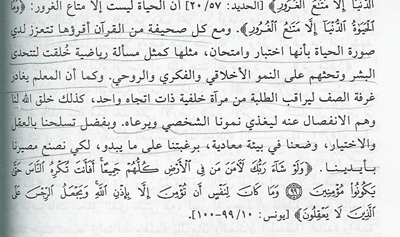 ٱلدُّنْيَآ إِلَّا مَتَـٰعُ ٱلْغُرُورِ﴾ [الحديد: ٢٠/٥٧] أن الحياة ليست إلا متاع الغرور: ﴿وَمَا
ٱلْحَيَوٰةُ ٱلدُّنْيَآ إِلَّا مَتَـٰعُ ٱلْغُرُورِ﴾. ومع كل صحيفة من القرآن أقرؤها تتعزز لدي
صورة الحياة بأنها اختبار وامتحان، مثلها كمثل مسألة رياضية خُلقت لتتحدى
البشر وتحثهم على النمو الأخلاقي والفكري والروحي. وكما أن المعلم يغادر
غرفة الصف ليراقب الطلبة من مرآة خلفية ذات اتجاه واحد، كذلك خلق الله لنا
وهم الانفصال عنه ليغذي نمونا الشخصي ويرعاه. وبفضل تسلحنا بالعقل
والاختيار، وضعنا في بيئة معادية، برغبتنا على ما يبدو، لكي نصنع مصيرنا
بأيدينا. ﴿وَلَوْ شَآءَ رَبُّكَ لَآمَنَ مَن فِي ٱلْأَرْضِ كُلُّهُمْ جَمِيعًا أَفَأَنتَ تُكْرِهُ ٱلنَّاسَ حَتَّىٰ
يَكُونُوا۟ مُؤْمِنِينَ ٩٩ وَمَا كَانَ لِنَفْسٍ أَن تُؤْمِنَ إِلَّا بِإِذْنِ ٱللَّهِ وَيَجْعَلُ ٱلرِّجْسَ عَلَى
ٱلَّذِينَ لَا يَعْقِلُونَ﴾ [يونس: ٩٩/١٠-١٠٠].